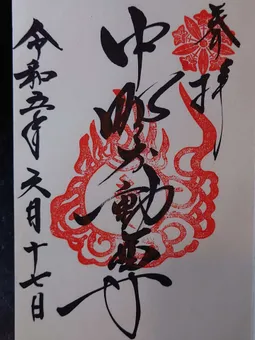 参拝
中野不動尊
令和五年六月十七日